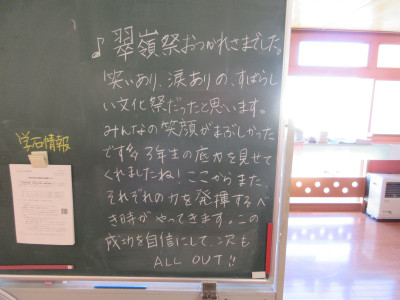 ♪翠嶺祭おつかれさまでした。
笑いあり、涙ありの、すばらし
い文化祭だったと思います。
みんなの笑顔がまぶしかった
です 3年生の底力を見せて
くれましたね!ここからまた、
それぞれの力を発揮するべ
き時がやってきます。この
成功を自信にして、次も
ALL OUT!!
学石情報